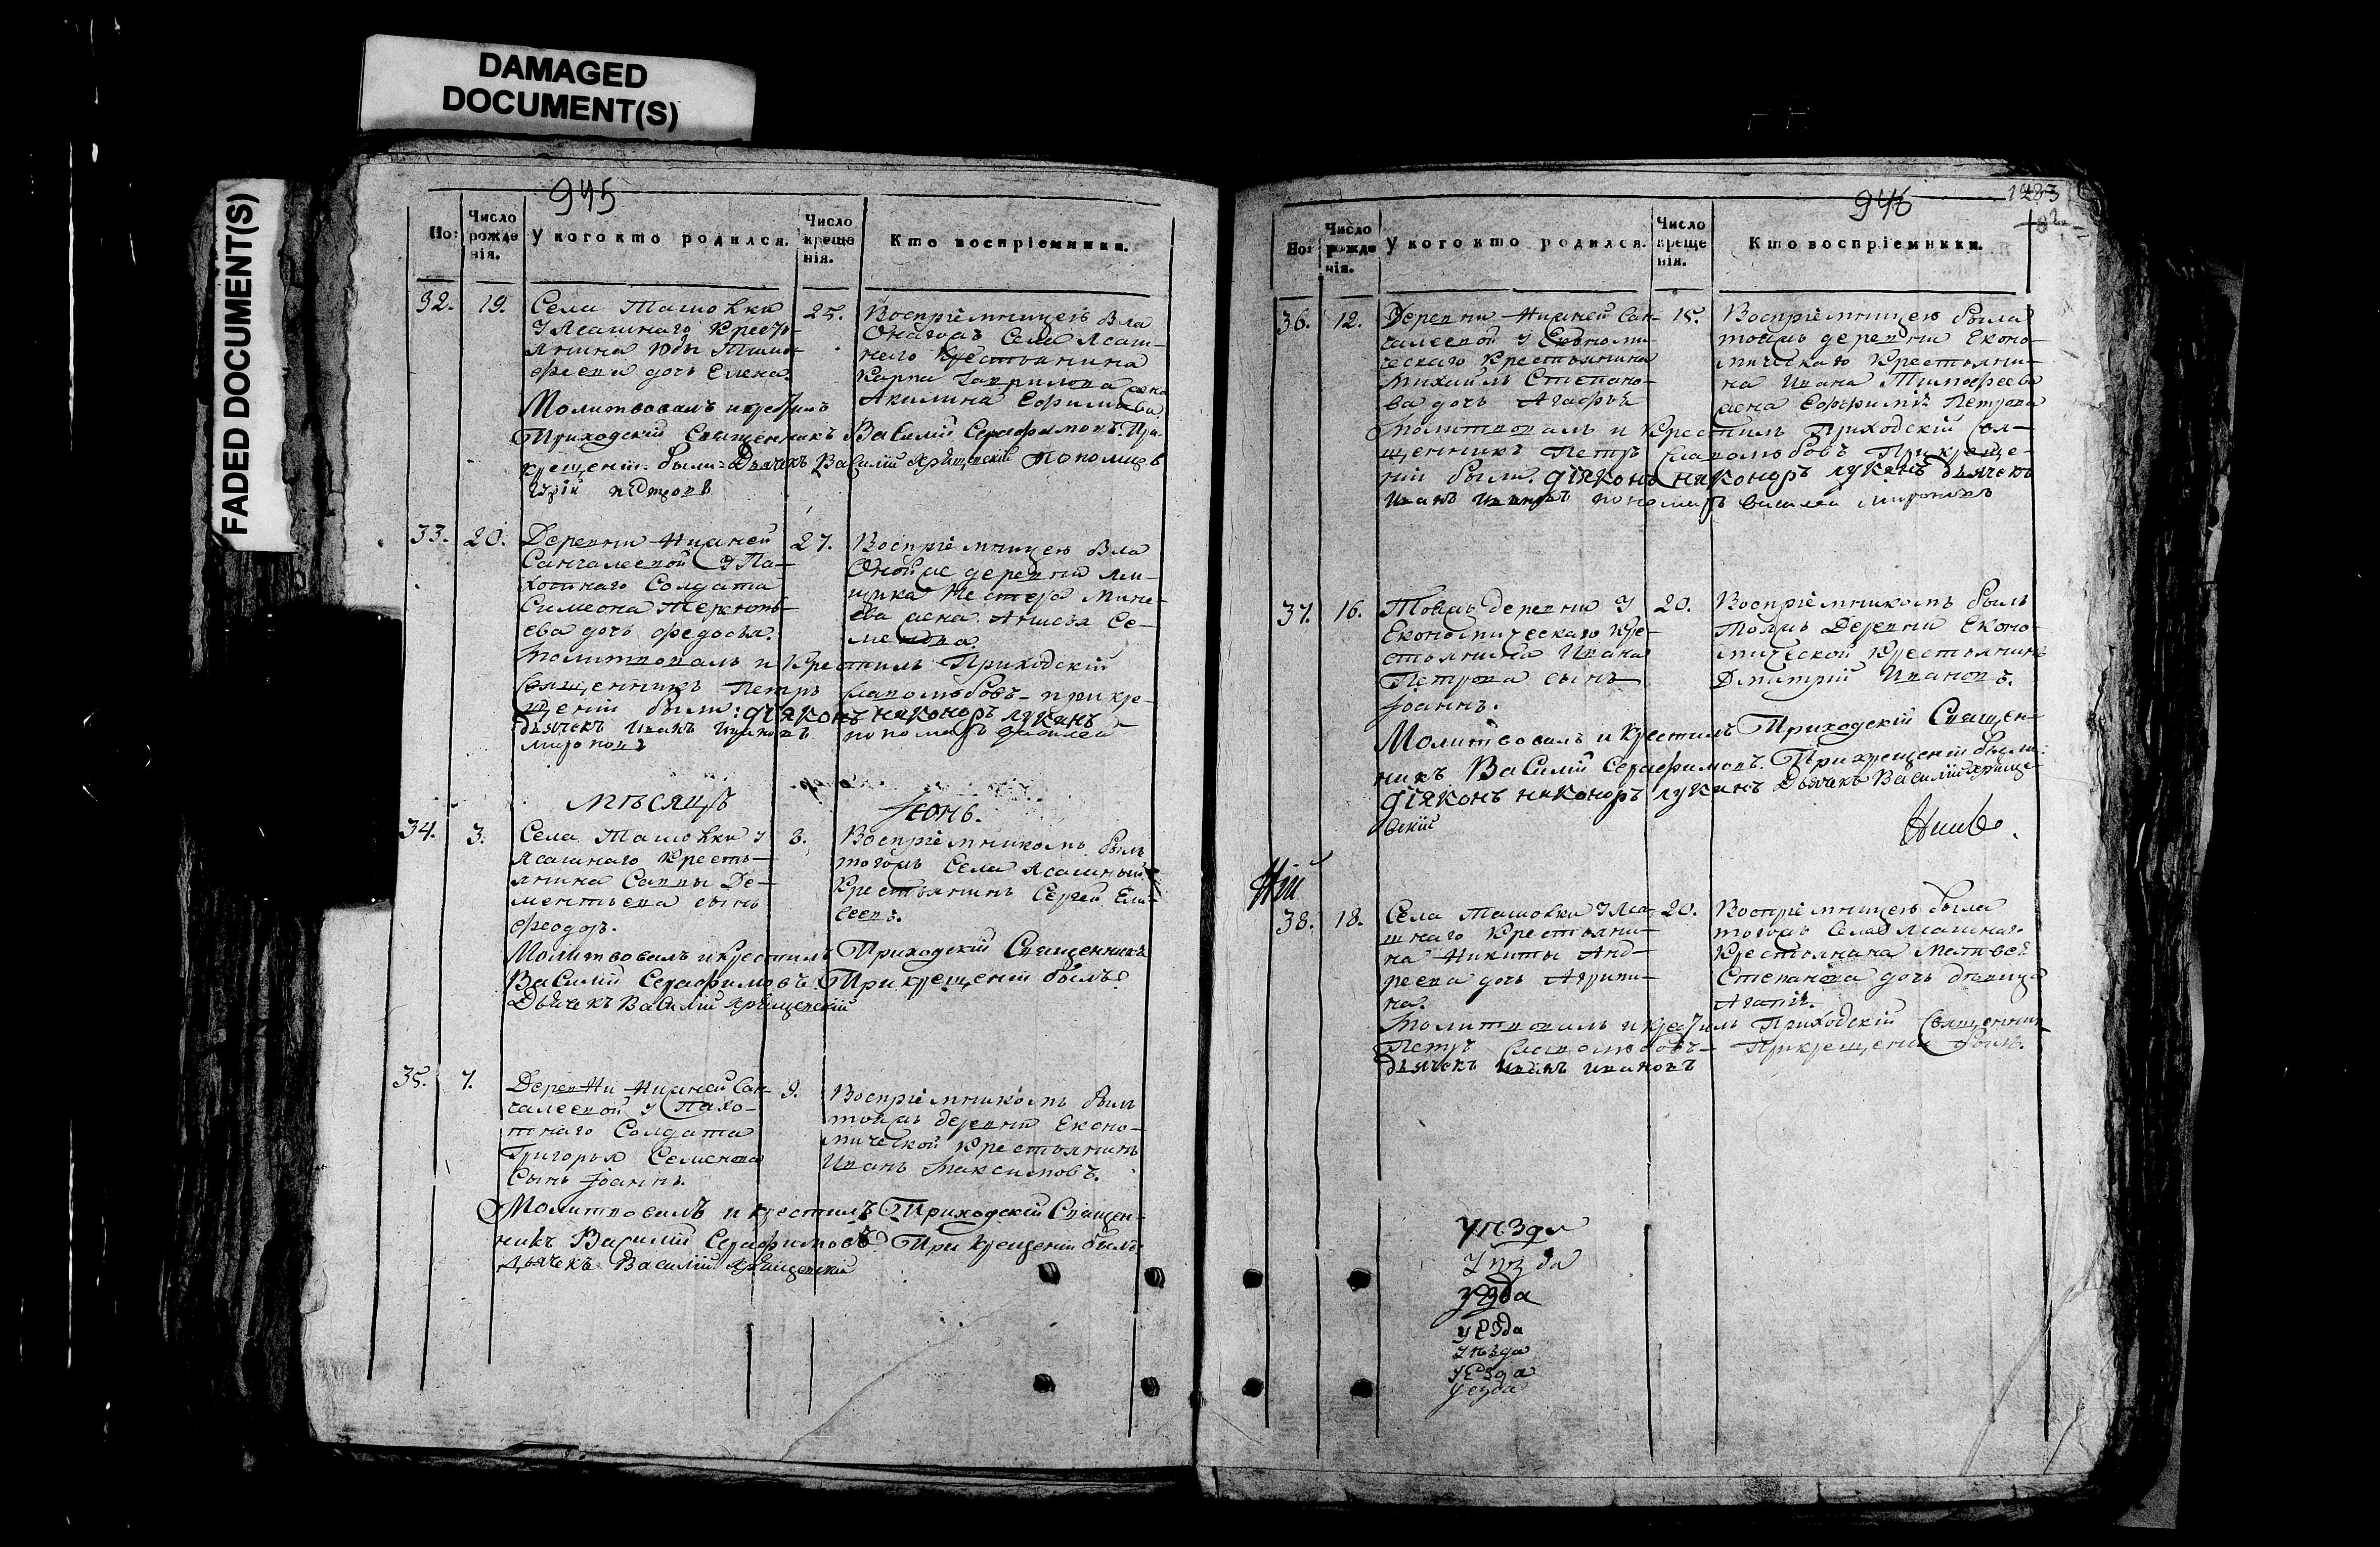 DAMAGED
DOCUMENT(S)
FADED DOCUMENT(S)
945
Но:
Число
рожде
нія.
У кого кто родился.
Число
креще
нія.
Кто воспріемники.
32. 19. Села Ташовки
У Ясашнаго Кресть-
янина Юды Тимо-
феева дочь Елена.
25. Воспріемницею вла
Онагожъ Села Ясаш-
наго Крестьянина
Карпа Гаврилова жена
Акилина Ефимова
Молитвовалъ и крестилъ
Приходскій Священникъ Василій Серафимовъ. При
крещеніи были: Дьячекъ Василій Хрящевскій пономарь
33. 20. Деревни Нижней
Сангалеевой У Па-
хотнаго Солдата
Симеона Терентье-
ева дочь Федосья.
27. Воспріемницею вла
Оной же деревни Ям-
щика Нестера Мине-
ева жена Анисья Се-
менова.
Молитвовалъ и Крестилъ Приходскій
Священникъ Петръ Славолюбовъ при кре-
щеніи были: діяконъ никоноръ лукинъ
дьячекъ Иванъ Ивановъ пономарь василей
мироновъ
Мѣсяцъ Іюнь.
34. 3. Села Ташовки У
Ясашнаго Кресть-
янина Саввы Де-
ментьева сынъ
Феодоръ.
3. Воспріемникомъ былъ
тогожъ Села Ясашный
Крестьянинъ Сергей Ели-
сеевъ.
Молитвовалъ и крестилъ Приходскій Священникъ
Василій Серафимовъ. При крещеніи былъ
Дьячекъ Василій Хрящевскій
35. 7. Деревни Нижней Сан-
галеевой У Пахо-
тнаго Солдата
Григорья Семенова
Сынъ Іоаннъ.
9. Воспріемникомъ былъ
тойжъ деревни Еконо-
мической Крестьянинъ
Иванъ Максимовъ.
Молитвовалъ и крестилъ Приходскій Священ-
никъ Василій Серафимовъ. При крещеніи былъ
Дьячекъ Василій Хрящевскій
946
1283
82
Но:
Число
рожде
нія.
У кого кто родился.
Число
креще
нія.
Кто воспріемники.
36. 12. Деревни Нижней Сан-
галеевой У Економи-
ческаго Крестьянина
Михайлы Степано-
ва дочь Агафья
15. Воспріемницею была
тойжъ деревни Еконо-
мическаго Крестьяни-
на Ивана Тимофеева
жена Евфимія Петрова
Молитвовалъ и Крестилъ Приходскій Свя-
щенникъ Петръ Славолюбовъ При креще-
ніи были: діяконъ никоноръ лукинъ дьячекъ
Иванъ Ивановъ пономарь василей мироновъ
37. 16. Тойжъ деревни У
Економическаго Кре-
стьянина Ивана
Петрова сынъ
Іоаннъ.
20. Воспріемникомъ былъ
Тойжъ Деревни Еконо-
мической Крестьянинъ
Дмитрий Ивановъ.
Молитвовалъ и Крестилъ Приходскій Священ-
никъ Василій Серафимовъ. При крещеніи были:
діяконъ никоноръ лукинъ Дьячекъ Василій Хряще-
вскій
38. 18. Села Ташовки У Яса-
шнаго Крестьяни-
на Никиты Анд-
реева дочь Агрипи-
на.
20. Воспріемницею была
тогожъ Села Ясашнаго
Крестьянина Матвея
Степанова дочь девица
Агапія.
Молитвовалъ и крестилъ Приходскій Священник
Петръ Славолюбовъ При крещеніи былъ
дьячекъ Иванъ Ивановъ
Уѣзда
Уѣзда
Уѣзда
Уѣзда
Уѣзда
Уѣзда
Уезда